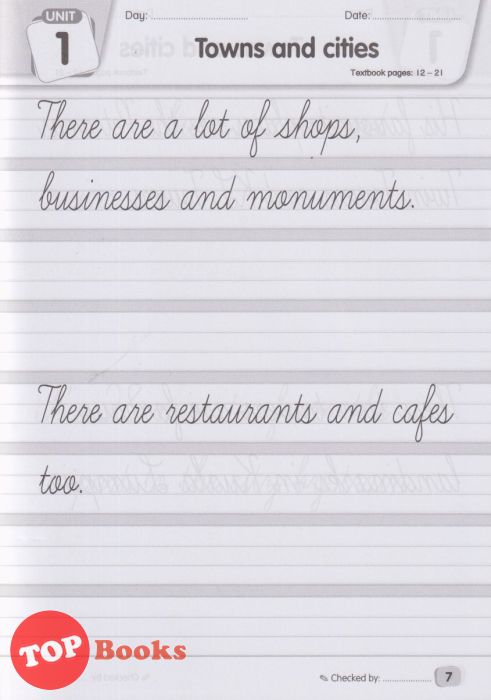 UNIT
1
Day: ........................ Date: ........................
Towns and cities
Textbook pages: 12 – 21
There are a lot of shops,
businesses and monuments.
There are restaurants and cafes
too.
TOP Books
✎ Checked by: .................. 7